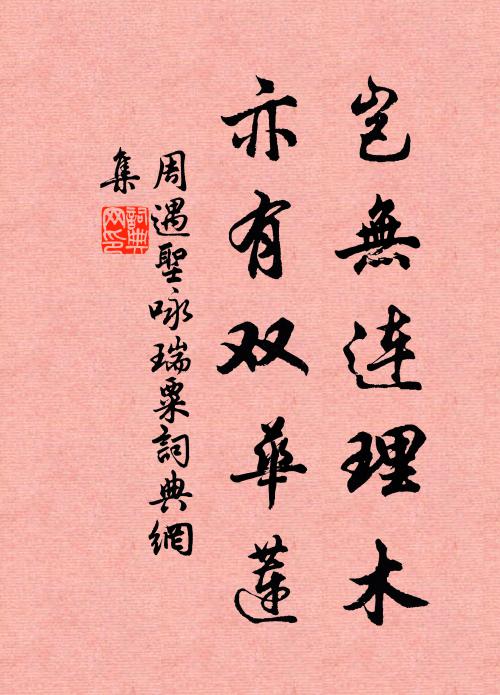 岂無连理木
亦有双華蓮
周遇聖咏瑞粟詞典網
集
詞典
网印